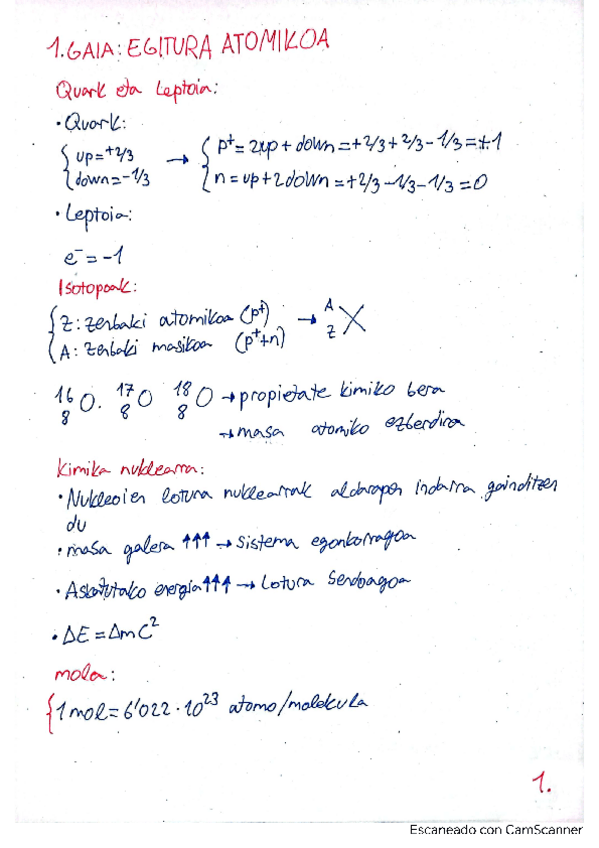 1.GAIA: EGITURA ATOMIKOA
Quark eta Leptoia:
• Quark:
{ up=+2/3 → { p⁺= 2up + down = +2/3 + 2/3 - 1/3 = +1
{ down=-1/3 { n = up + 2 down = +2/3 - 1/3 - 1/3 = 0
• Leptoia:
e⁻ = -1
Isotopoak:
{ Z: zenbaki atomikoa (p⁺) → ᴬ_Z X
{ A: zenbaki masikoa (p⁺+n)
¹⁶₈O. ¹⁷₈O ¹⁸₈O → propietate kimiko bera
→ masa atomiko ezberdina
Kimika nuklearra:
• Nukleoien lotura nuklearrak aldarapen indarra gainditzen
du
• masa galera ↑↑↑ → Sistema egonkorragoa
• Askatutako energia ↑↑↑ → Lotura Sendoagoa
• ΔE = Δmc²
mola:
{ 1 mol = 6'022 · 10²³ atomo/molekula
1.
Escaneado con CamScanner